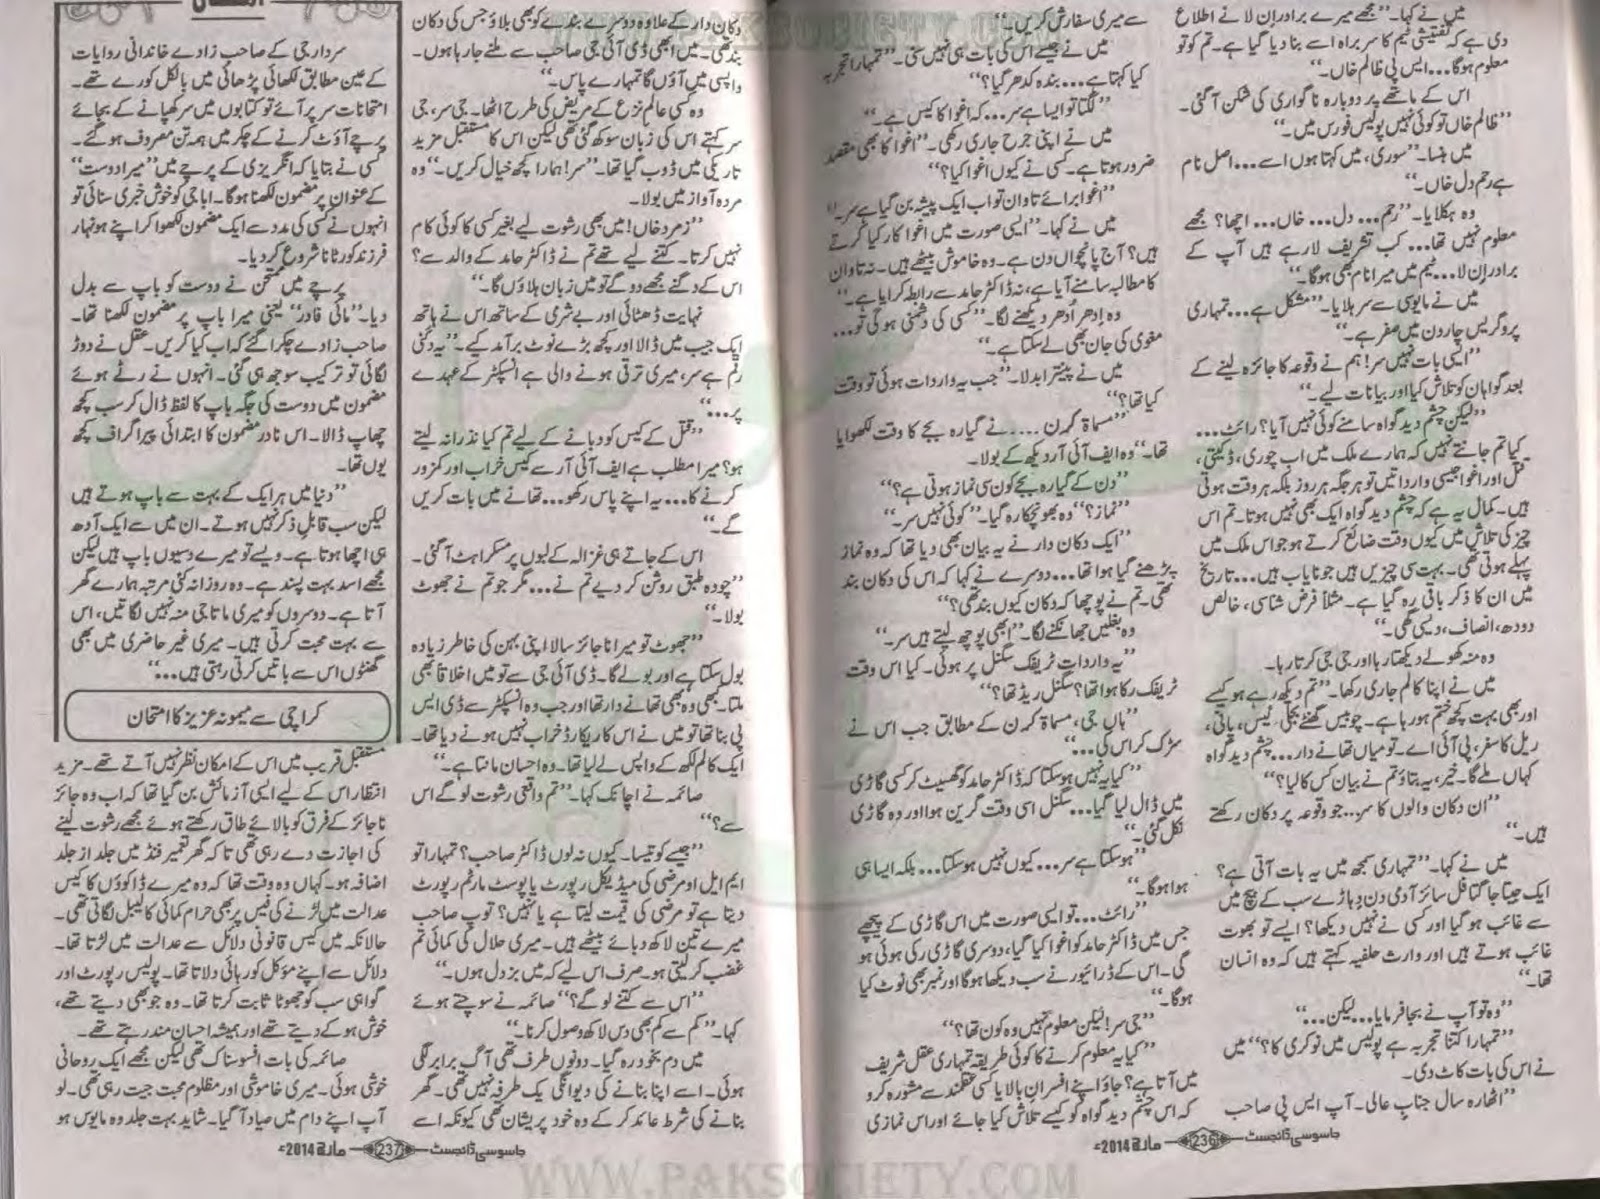 میں نے کہا۔ ”مجھے میرے برادران لا نے اطلاع
دی ہے کہ تفتیشی ٹیم کا سربراہ اسے بنا دیا گیا ہے۔ تم کو تو
معلوم ہوگا... ایس پی ظالم خاں۔“
اس کے ماتھے پر دوبارہ ناگواری کی شکن آگئی۔
”ظالم خاں تو کوئی نہیں پولیس فورس میں۔“
میں ہنسا۔ ”سوری، میں کہتا ہوں اسے... اصل نام
ہے رحم دل خاں۔“
وہ ہکلایا۔ ”رحم... دل... خاں... اچھا؟ مجھے
معلوم نہیں تھا... کب تشریف لا رہے ہیں آپ کے
برادران لا... ٹیم میں میرا نام بھی ہوگا۔“
میں نے مایوسی سے سر ہلایا۔ ”مشکل ہے... تمہاری
پروگریس چار دن میں صفر ہے۔“
”ایسی بات نہیں سر! ہم نے وقوعہ کا جائزہ لینے کے
بعد گواہان کو تلاش کیا اور بیانات لیے۔“
”لیکن چشم دید گواہ سامنے کوئی نہیں آیا؟ رائٹ...
کیا تم جانتے نہیں کہ ہمارے ملک میں اب چوری، ڈکیتی،
قتل اور اغوا جیسی وارداتیں تو ہر جگہ ہر روز بلکہ ہر وقت ہوتی
ہیں۔ کمال یہ ہے کہ چشم دید گواہ ایک بھی نہیں ہوتا۔ تم اس
چیز کی تلاش میں کیوں وقت ضائع کرتے ہو جو اس ملک میں
پہلے ہوتی تھی۔ بہت سی چیزیں ہیں جو نایاب ہیں... تاریخ
میں ان کا ذکر باقی رہ گیا ہے۔ مثلاً فرض شناسی، خالص
دودھ، انصاف، دیسی گھی۔“
وہ منہ کھولے دیکھتا رہا اور جی جی کرتا رہا۔
میں نے اپنا کالم جاری رکھا۔ ”تم دیکھ رہے ہو کیسے
اور بھی بہت کچھ ختم ہو رہا ہے۔ چوبیس گھنٹے بجلی گیس، پانی،
ریل کا سفر، پی آئی اے۔ تو میاں تھانے دار... چشم دید گواہ
کہاں ملے گا۔ خیر، یہ بتاؤ تم نے بیان کس کا لیا؟“
”ان دکان والوں کا سر... جو وقوعہ پر دکان رکھتے
ہیں۔“
میں نے کہا۔ ”تمہاری سمجھ میں یہ بات آتی ہے؟
ایک جیتا جاگتا فل سائز آدمی دن دہاڑے سب کے بیچ میں
سے غائب ہو گیا اور کسی نے نہیں دیکھا؟ ایسے تو بھوت
غائب ہوتے ہیں اور وارث حلفیہ کہتے ہیں کہ وہ انسان
تھا۔“
”وہ تو آپ نے بجا فرمایا... لیکن...“
”تمہارا کتنا تجربہ ہے پولیس میں نوکری کا؟“ میں
نے اس کی بات کاٹ دی۔
”اٹھارہ سال جناب عالی۔ آپ ایس پی صاحب
سے میری سفارش کریں۔“
میں نے جیسے اس کی بات ہی نہیں سنی۔ ”تمہارا تجربہ
کیا کہتا ہے... بندہ کدھر گیا؟“
”لگتا تو ایسا ہے سر... کہ اغوا کا کیس ہے۔“
میں نے اپنی جرح جاری رکھی۔ ”اغوا کا بھی مقصد
ضرور ہوتا ہے۔ کسی نے کیوں اغوا کیا؟“
”اغوا برائے تاوان تو اب ایک پیشہ بن گیا ہے سر۔“
میں نے کہا۔ ”ایسی صورت میں اغوا کار کیا کرتے
ہیں؟ آج پانچواں دن ہے۔ وہ خاموش بیٹھے ہیں۔ نہ تاوان
کا مطالبہ سامنے آیا ہے، نہ ڈاکٹر حامد سے رابطہ کرایا ہے۔“
وہ اِدھر اُدھر دیکھنے لگا۔ ”کسی کی دشمنی ہوگی تو...
مغوی کی جان بھی لے سکتا ہے۔“
میں نے پینترا بدلا۔ ”جب یہ واردات ہوئی تو وقت
کیا تھا؟“
”مسماۃ کرن .... نے گیارہ بجے کا وقت لکھوایا
تھا۔“ وہ ایف آئی آر دیکھ کے بولا۔
”دن کے گیارہ بجے کون سی نماز ہوتی ہے؟“
”نماز؟“ وہ بھونچکا رہ گیا۔ ”کوئی نہیں سر۔“
”ایک دکان دار نے یہ بیان بھی دیا تھا کہ وہ نماز
پڑھنے گیا ہوا تھا... دوسرے نے کہا کہ اس کی دکان بند
تھی۔ تم نے پوچھا کہ دکان کیوں بند تھی؟“
وہ بغلیں جھانکنے لگا۔ ”ابھی پوچھ لیتے ہیں سر۔“
”یہ واردات ٹریفک سگنل پر ہوئی۔ کیا اس وقت
ٹریفک رکا ہوا تھا؟ سگنل ریڈ تھا؟“
”ہاں جی، مسماۃ کرن کے مطابق جب اس نے
سڑک کراس کی...“
”کیا یہ نہیں ہو سکتا کہ ڈاکٹر حامد کو گھسیٹ کر کسی گاڑی
میں ڈال لیا گیا... سگنل اسی وقت گرین ہوا اور وہ گاڑی
نکل گئی۔“
”ہو سکتا ہے سر... کیوں نہیں ہو سکتا... بلکہ ایسا ہی
ہوا ہوگا۔“
”رائٹ... تو ایسی صورت میں اس گاڑی کے پیچھے
جس میں ڈاکٹر حامد کو اغوا کیا گیا، دوسری گاڑی رکی ہوئی ہو
گی۔ اس کے ڈرائیور نے سب دیکھا ہوگا اور نمبر بھی نوٹ کیا
ہوگا۔“
”جی سر! لیکن معلوم نہیں وہ کون تھا؟“
”کیا یہ معلوم کرنے کا کوئی طریقہ تمہاری عقل شریف
میں آتا ہے؟ جاؤ اپنے افسران بالا یا کسی عقلمند سے مشورہ کرو
کہ اس چشم دید گواہ کو کیسے تلاش کیا جائے اور اس نمازی
جاسوسی ڈائجسٹ 236 مارچ 2014ء
دکان دار کے علاوہ دوسرے بندے کو بھی بلاؤ جس کی دکان
بند تھی۔ میں ابھی ڈی آئی جی صاحب سے ملنے جا رہا ہوں۔
واپسی میں آؤں گا تمہارے پاس۔“
وہ کسی عالم نزع کے مریض کی طرح اٹھا۔ جی سر، جی
سر کہتے اس کی زبان سوکھ گئی تھی لیکن اس کا مستقبل مزید
تاریکی میں ڈوب گیا تھا۔ ”سر! ہمارا کچھ خیال کریں۔“ وہ
مردہ آواز میں بولا۔
”زمرد خاں! میں بھی رشوت لیے بغیر کسی کا کوئی کام
نہیں کرتا۔ کتنے لیے تھے تم نے ڈاکٹر حامد کے والد سے؟
اس کے دگنے مجھے دو گے تو میں زبان ہلاؤں گا۔“
نہایت ڈھٹائی اور بے شرمی کے ساتھ اس نے ہاتھ
ایک جیب میں ڈالا اور کچھ بڑے نوٹ برآمد کیے۔ ”یہ دگنی
رقم ہے سر، میری ترقی ہونے والی ہے انسپکٹر کے عہدے
پر...“
”قتل کے کیس کو دبانے کے لیے تم کیا نذرانہ لیتے
ہو؟ میرا مطلب ہے ایف آئی آر سے کیس خراب اور کمزور
کرنے کا... یہ اپنے پاس رکھو... تھانے میں بات کریں
گے۔“
اس کے جاتے ہی غزالہ کے لبوں پر مسکراہٹ آگئی۔
”چودہ طبق روشن کر دیے تم نے... مگر جو تم نے جھوٹ
بولا۔“
”جھوٹ تو میرا ناجائز سالا اپنی بہن کی خاطر زیادہ
بول سکتا ہے اور بولے گا۔ ڈی آئی جی سے تو میں اخلاقاً بھی
ملتا۔ کبھی وہ بھی تھانے دار تھا اور جب وہ انسپکٹر سے ڈی ایس
پی بنا تھا تو میں نے اس کا ریکارڈ خراب نہیں ہونے دیا تھا۔
ایک کالم لکھ کے واپس لے لیا تھا۔ وہ احسان مانتا ہے۔“
صائمہ نے اچانک کہا۔ ”تم واقعی رشوت لو گے اس
سے؟“
”جیسے کو تیسا۔ کیوں نہ لوں ڈاکٹر صاحب؟ تمہارا تو
ایم ایل او مرضی کی میڈیکل رپورٹ یا پوسٹ مارٹم رپورٹ
دیتا ہے تو مرضی کی قیمت لیتا ہے یا نہیں؟ توپ صاحب
میرے تین لاکھ دبائے بیٹھے ہیں۔ میری حلال کی کمائی تم
غضب کر لیتی ہو۔ صرف اس لیے کہ میں بزدل ہوں۔“
”اس سے کتنے لو گے؟“ صائمہ نے سوچتے ہوئے
کہا۔ ”کم سے کم بھی دس لاکھ وصول کرنا۔“
میں دم بخود رہ گیا۔ دونوں طرف تھی آگ برابر لگی
ہوئی۔ اسے اپنا بنانے کی دیوانگی یک طرفہ نہیں تھی۔ گھر
بنانے کی شرط عائد کر کے وہ خود پریشان تھی کیونکہ اسے
سردار جی کے صاحب زادے خاندانی روایات
کے عین مطابق لکھائی پڑھائی میں بالکل کورے تھے۔
امتحانات سر پر آئے تو کتابوں میں سر کھپانے کے بجائے
پرچے آؤٹ کرنے کے چکر میں ہمہ تن مصروف ہو گئے۔
کسی نے بتایا کہ انگریزی کے پرچے میں ”میرا دوست“
کے عنوان پر مضمون لکھنا ہوگا۔ ابا جی کو خوش خبری سنائی تو
انہوں نے کسی کی مدد سے ایک مضمون لکھوا کر اپنے ہونہار
فرزند کو رٹانا شروع کر دیا۔
پرچے میں ممتحن نے دوست کو باپ سے بدل
دیا۔ ”مائی فادر“ یعنی میرا باپ پر مضمون لکھنا تھا۔
صاحب زادے چکرا گئے کہ اب کیا کریں۔ عقل نے دوڑ
لگائی تو ترکیب سوجھ ہی گئی۔ انہوں نے رٹے ہوئے
مضمون میں دوست کی جگہ باپ کا لفظ ڈال کر سب کچھ
چھاپ ڈالا۔ اس نادر مضمون کا ابتدائی پیراگراف کچھ
یوں تھا۔
”دنیا میں ہر ایک کے بہت سے باپ ہوتے ہیں
لیکن سب قابلِ ذکر نہیں ہوتے۔ ان میں سے ایک آدھ
ہی اچھا ہوتا ہے۔ ویسے تو میرے دسیوں باپ ہیں لیکن
مجھے اسد بہت پسند ہے۔ وہ روزانہ کئی مرتبہ ہمارے گھر
آتا ہے۔ دوسروں کو میری ماتا جی منہ نہیں لگاتیں، اس
سے بہت محبت کرتی ہیں۔ میری غیر حاضری میں بھی
گھنٹوں اس سے باتیں کرتی رہتی ہیں...“
کراچی سے میمونہ عزیز کا امتحان
مستقبل قریب میں اس کے امکان نظر نہیں آتے تھے۔ مزید
انتظار اس کے لیے ایسی آزمائش بن گیا تھا کہ اب وہ جائز
ناجائز کے فرق کو بالائے طاق رکھتے ہوئے مجھے رشوت لینے
کی اجازت دے رہی تھی تاکہ گھر تعمیر فنڈ میں جلد از جلد
اضافہ ہو۔ کہاں وہ وقت تھا کہ وہ میرے ڈاکوؤں کا کیس
عدالت میں لڑنے کی فیس پر بھی حرام کمائی کا لیبل لگاتی تھی۔
حالانکہ میں کیس قانونی دلائل سے عدالت میں لڑتا تھا۔
دلائل سے اپنے مؤکل کو رہائی دلاتا تھا۔ پولیس رپورٹ اور
گواہی سب کو جھوٹا ثابت کرتا تھا۔ وہ جو بھی دیتے تھے،
خوش ہو کے دیتے تھے اور ہمیشہ احسان مند رہتے تھے۔
صائمہ کی بات افسوسناک تھی لیکن مجھے ایک روحانی
خوشی ہوئی۔ میری خاموشی اور مظلوم محبت جیت رہی تھی۔ لو
آپ اپنے دام میں صیاد آ گیا۔ شاید بہت جلد وہ مایوس ہو
جاسوسی ڈائجسٹ 237 مارچ 2014ء
WWW.PAKSOCIETY.COM